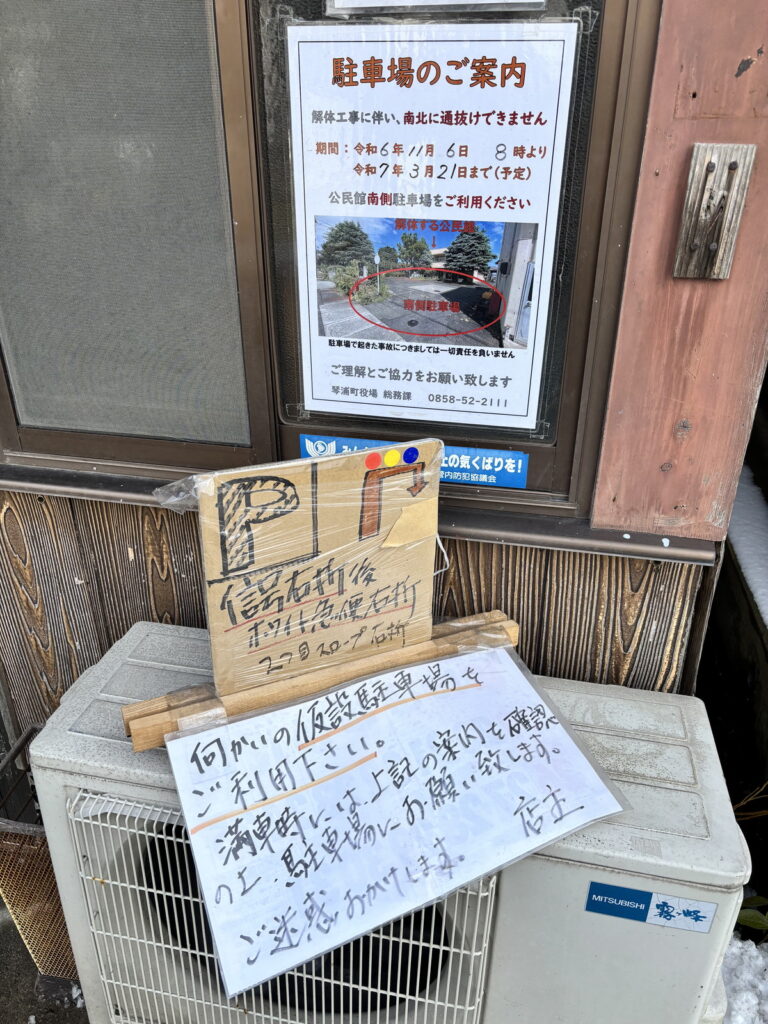 駐車場のご案内
解体工事に伴い、南北に通抜けできません
期間：令和6年11月6日 8時より
令和7年3月21日まで(予定)
公民館南側駐車場をご利用ください
解体する公民館
↓
南側駐車場
駐車場で起きた事故につきましては一切責任を負いません
ご理解とご協力をお願い致します
琴浦町役場 総務課 0858-52-2111
上の気くばりを!
管内防犯協議会
P
信号右折後
ホワイト急便右折
2つ目スロープ右折
向かいの仮設駐車場を
ご利用下さい。
満車時には、上記の案内を確認
の上、駐車場にお願い致します。
ご迷惑おかけします。 店主
MITSUBISHI 霧ヶ峰